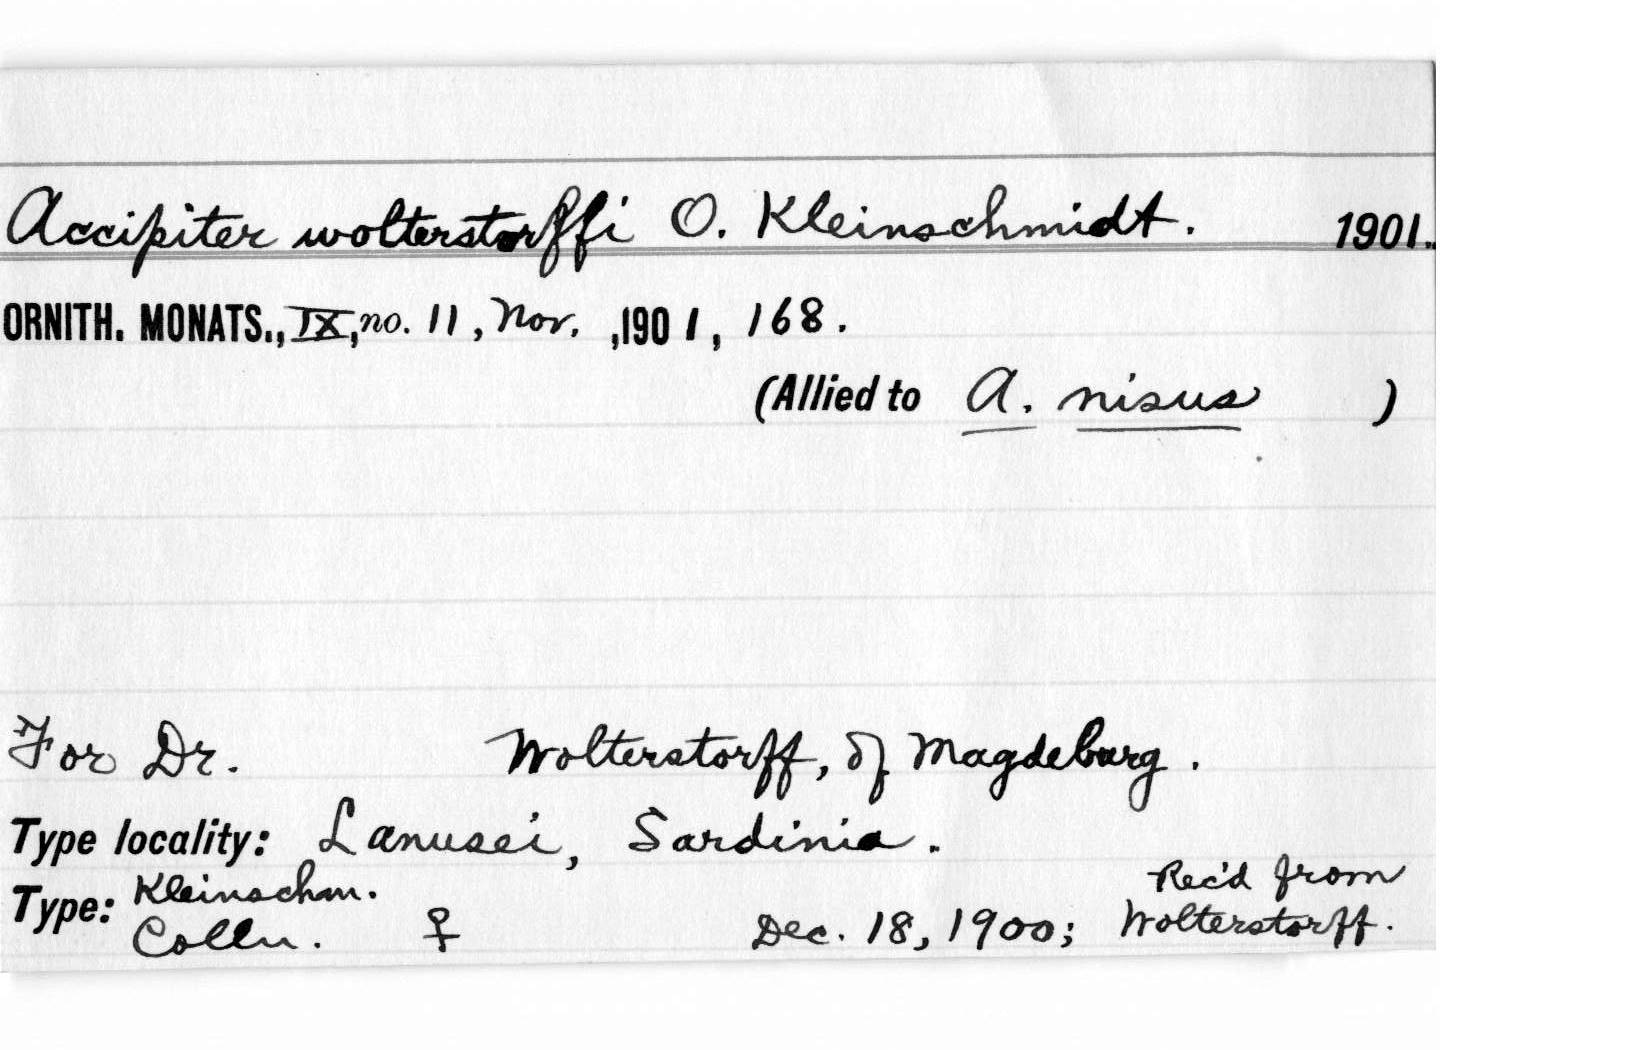 Accipiter wolterstorffi O. Kleinschmidt. 1901.
ORNITH. MONATS., IX, no. 11, Nov. ,1901, 168.
(Allied to A. nisus )
For Dr. Wolterstorff, of Magdeburg.
Type locality: Lanusei, Sardinia.
Type: Kleinschm. Colln. ♀ Dec. 18, 1900; Rec'd from Wolterstorff.